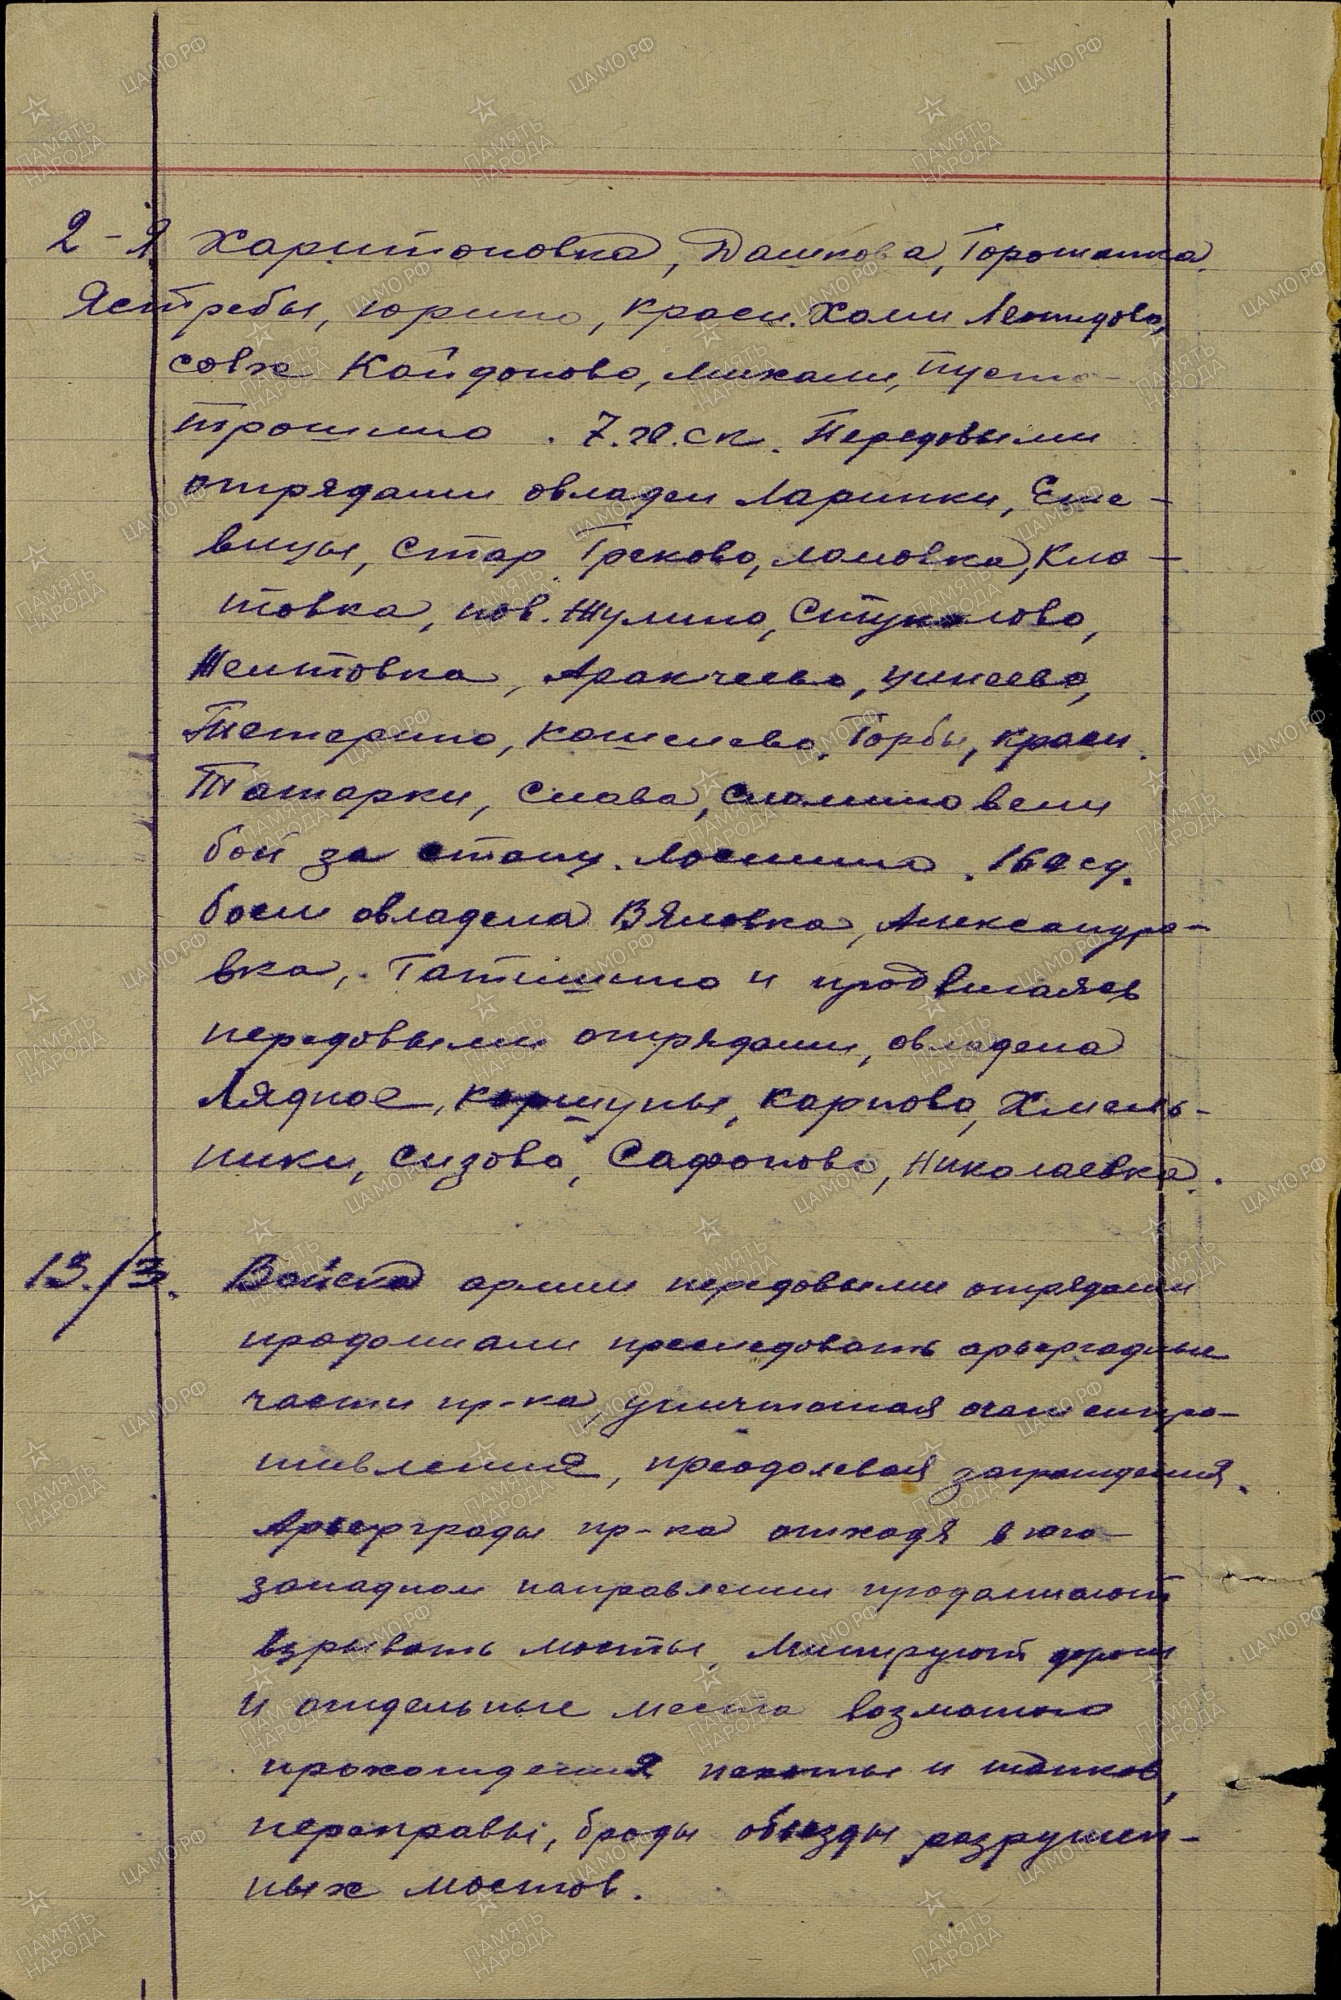 2-я Харитоновка, Дашкова, Горошинка,
Ястребы, Юрино, Красн. Холм Леонидово,
совх Кайдоново, Михали, Пусто-
трошино. 7.гв.ск. Передовыми
отрядами овладел Ларинки, Еше-
вицы, Стар Греково, Ломовка, Кло-
товка, нов. Жулино, Стукалово,
Желтовка, Аракчеево, Цинеево,
Тетерино, Кошелево, Горбы, Красн.
Татарки, Слава, Сломино вели
бой за станц. Лосмино. 162 сд.
боем овладела Вяловка, Александро-
вка, Татищино и продвигаясь
передовыми отрядами, овладела
Лядное, Коршуны, Карпово, Хмель-
ники, Сизово, Сафоново, Николаевка.
13./3. Войска армии передовыми отрядами
продолжали преследовать арьергадные
части пр-ка, уничтожая очаги сопро-
тивления, преодолевая заграждения.
Арьерграды пр-ка отходя в юго-
западном направлении продолжают
взрывать мосты, минируют дороги
и отдельные места возможно
прохождения пехоты и танков,
переправы, броды объезды разрушен-
ных мостов.
ПАМЯТЬ НАРОДА
ЦАМО.РФ